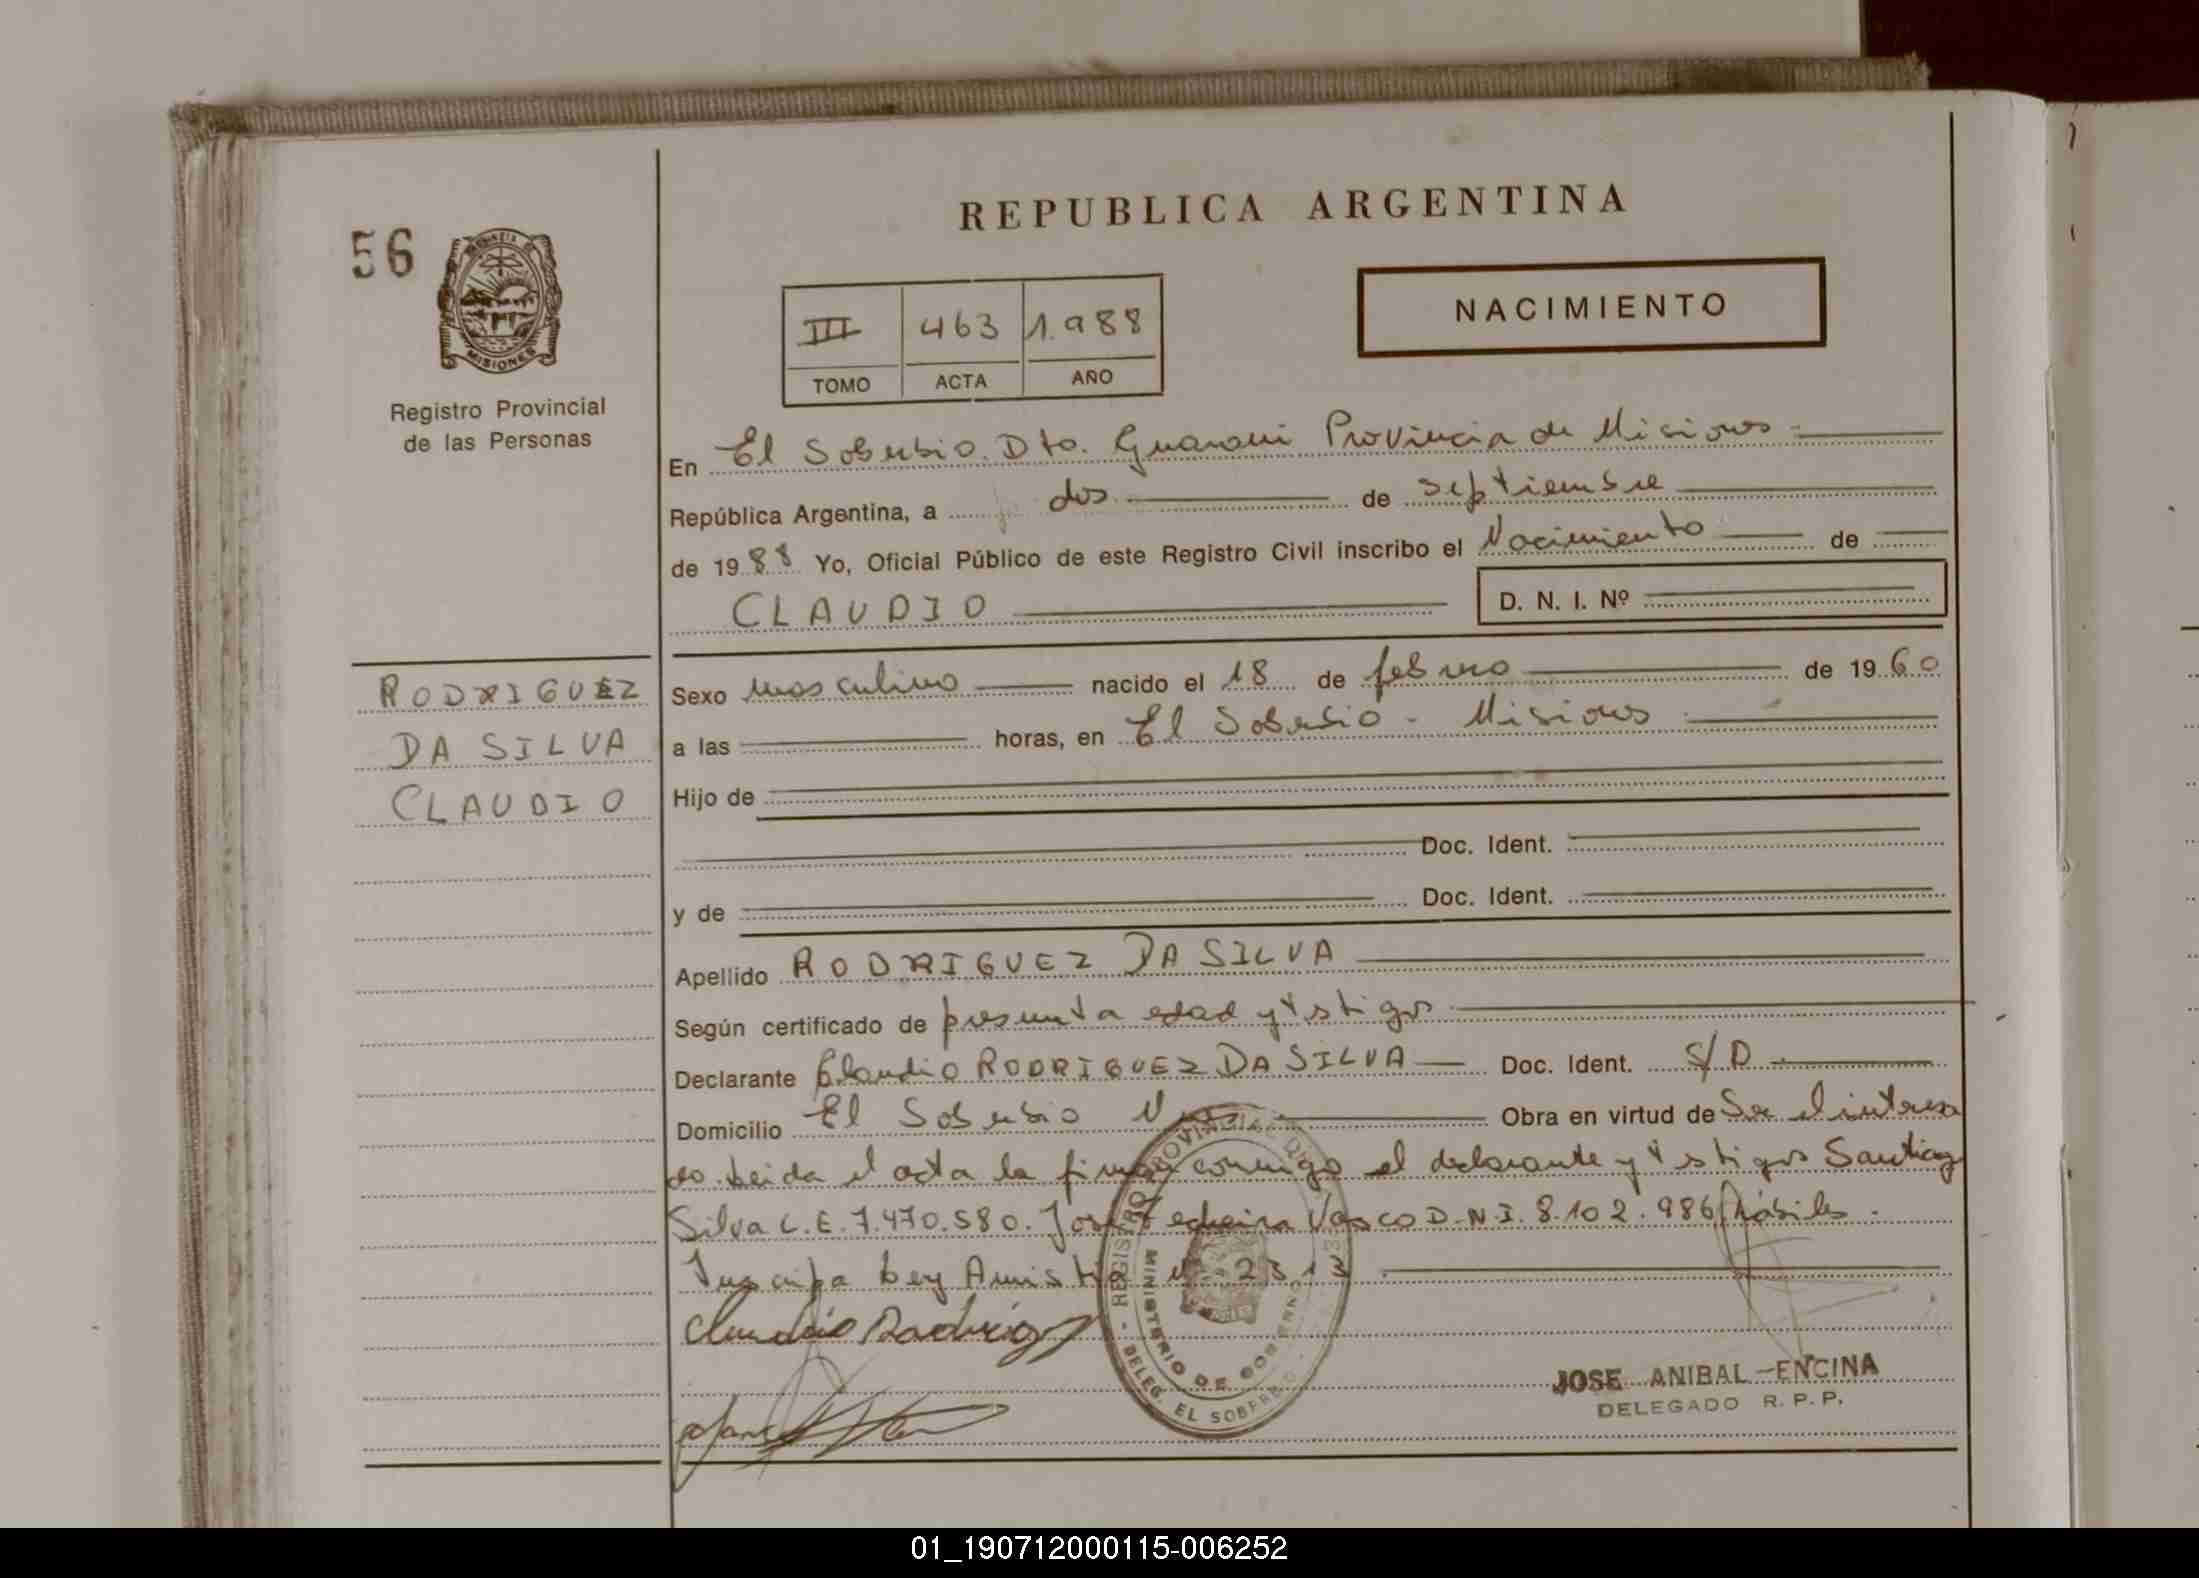 REPUBLICA ARGENTINA
56
MISIONES
Registro Provincial
de las Personas
III 463 1.988
TOMO ACTA AÑO
NACIMIENTO
En El Soberbio. Dto. Guarani Provincia de Misiones
República Argentina, a dos de septiembre
de 1988 Yo, Oficial Público de este Registro Civil inscribo el Nacimiento de
CLAUDIO D. N. I. Nº
RODRIGUEZ
DA SILVA
CLAUDIO
Sexo masculino nacido el 18 de febrero de 1960
a las horas, en El Soberbio - Misiones
Hijo de
Doc. Ident.
y de Doc. Ident.
Apellido RODRIGUEZ DA SILVA
Según certificado de presunta edad y testigos
Declarante Claudio RODRIGUEZ DA SILVA Doc. Ident. S/D
Domicilio El Soberbio Obra en virtud de Ser el interesa
do. Leida el acta la firman conmigo el declarante y testigos Santiago
Silva C.E. 7.470.580. José Vasco D.N.I. 8.102.986 hábiles.
Inscripta Ley Amnistia 2313
Claudio Rodrigz
REGISTRO PROVINCIAL
MINISTERIO DE GOBIERNO
DELEG. EL SOBERBIO
JOSE ANIBAL ENCINA
DELEGADO R. P. P.
01_190712000115-006252